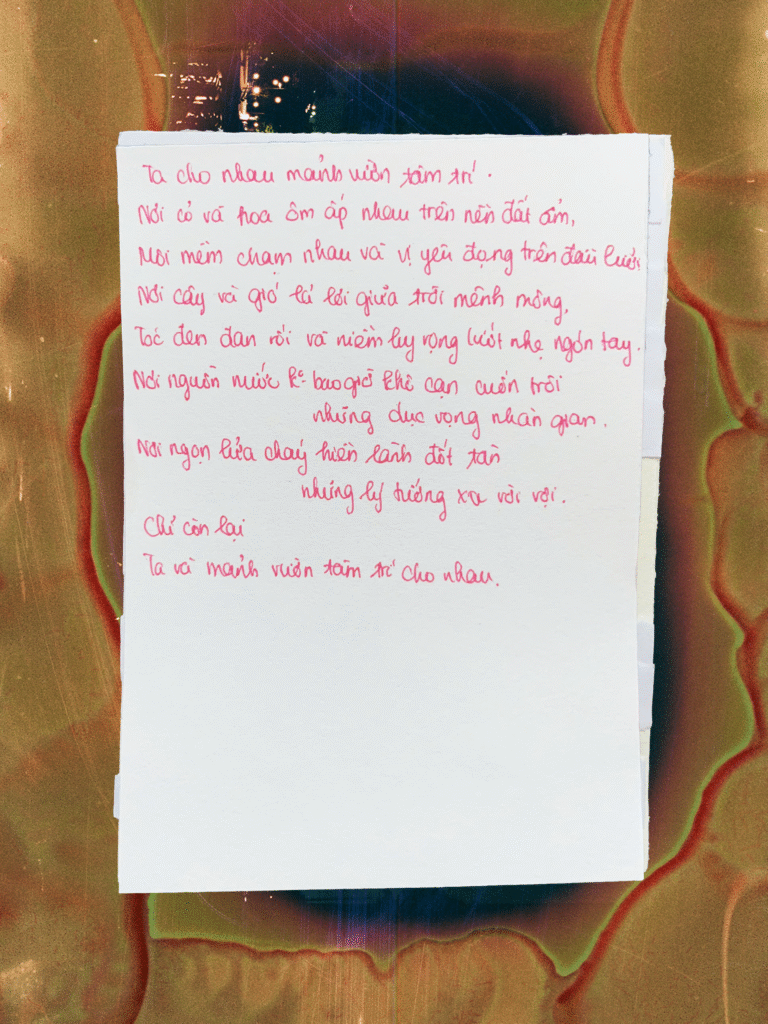 Ta cho nhau mảnh vườn tâm trí.
Nơi cỏ và hoa ôm ấp nhau trên nền đất ẩm,
Môi mềm chạm nhau và vị yêu đọng trên đầu lưỡi
Nơi cây và gió lả lơi giữa trời mênh mông,
Tóc đen đan rối và niềm hy vọng lướt nhẹ ngón tay.
Nơi nguồn nước k° bao giờ khô cạn cuốn trôi
những dục vọng nhân gian.
Nơi ngọn lửa cháy hiền lành đốt tàn
những lý tưởng xa vời vợi.
Chỉ còn lại
Ta và mảnh vườn tâm trí cho nhau.